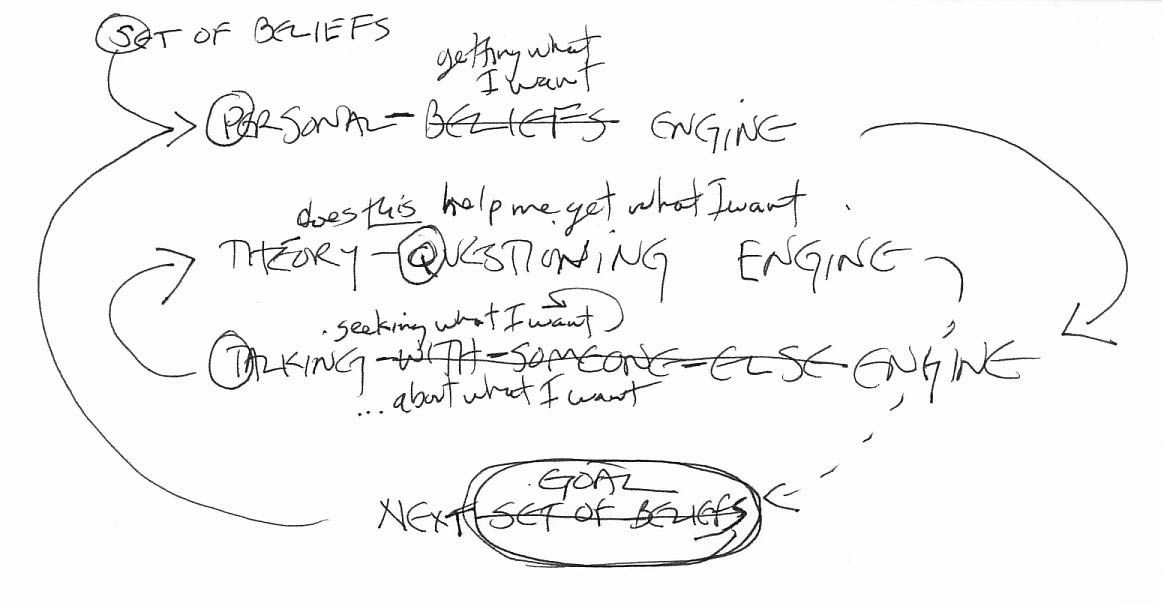 SET OF BELIEFS
getting what
I want
PERSONAL-BELIEFS ENGINE
does this help me get what I want.
THEORY-QUESTIONING ENGINE
. seeking what I want
TALKING-WITH-SOMEONE-ELSE ENGINE
... about what I want
GOAL
NEXT SET OF BELIEFS